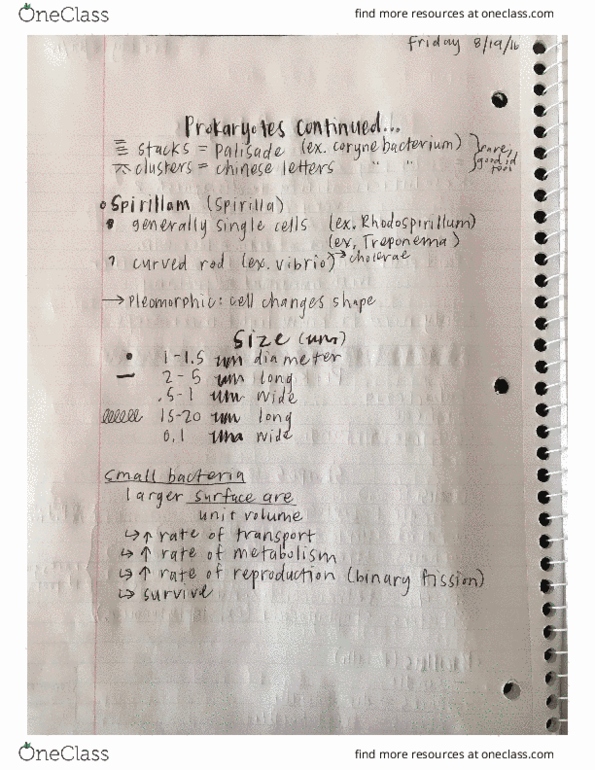 OneClass
find more resources at oneclass.com
Friday 8/19/16
Prokaryotes Continued...
stacks = Palisade (ex. corynebacterium) rare,
clusters = chinese letters " " good id tool
Spirillam (Spirilla)
generally single cells (ex. Rhodospirillum)
(ex, Treponema)
curved rod (ex. vibrio) → cholerae
→ Pleomorphic: cell changes shape
Size (um)
1-1.5 um diameter
2-5 um long
.5-1 um wide
15-20 um long
0.1 um wide
small bacteria
larger surface are
unit volume
↳ ↑ rate of transport
↳ ↑ rate of metabolism
↳ ↑ rate of reproduction (binary fission)
↳ survive
OneClass
find more resources at oneclass.com